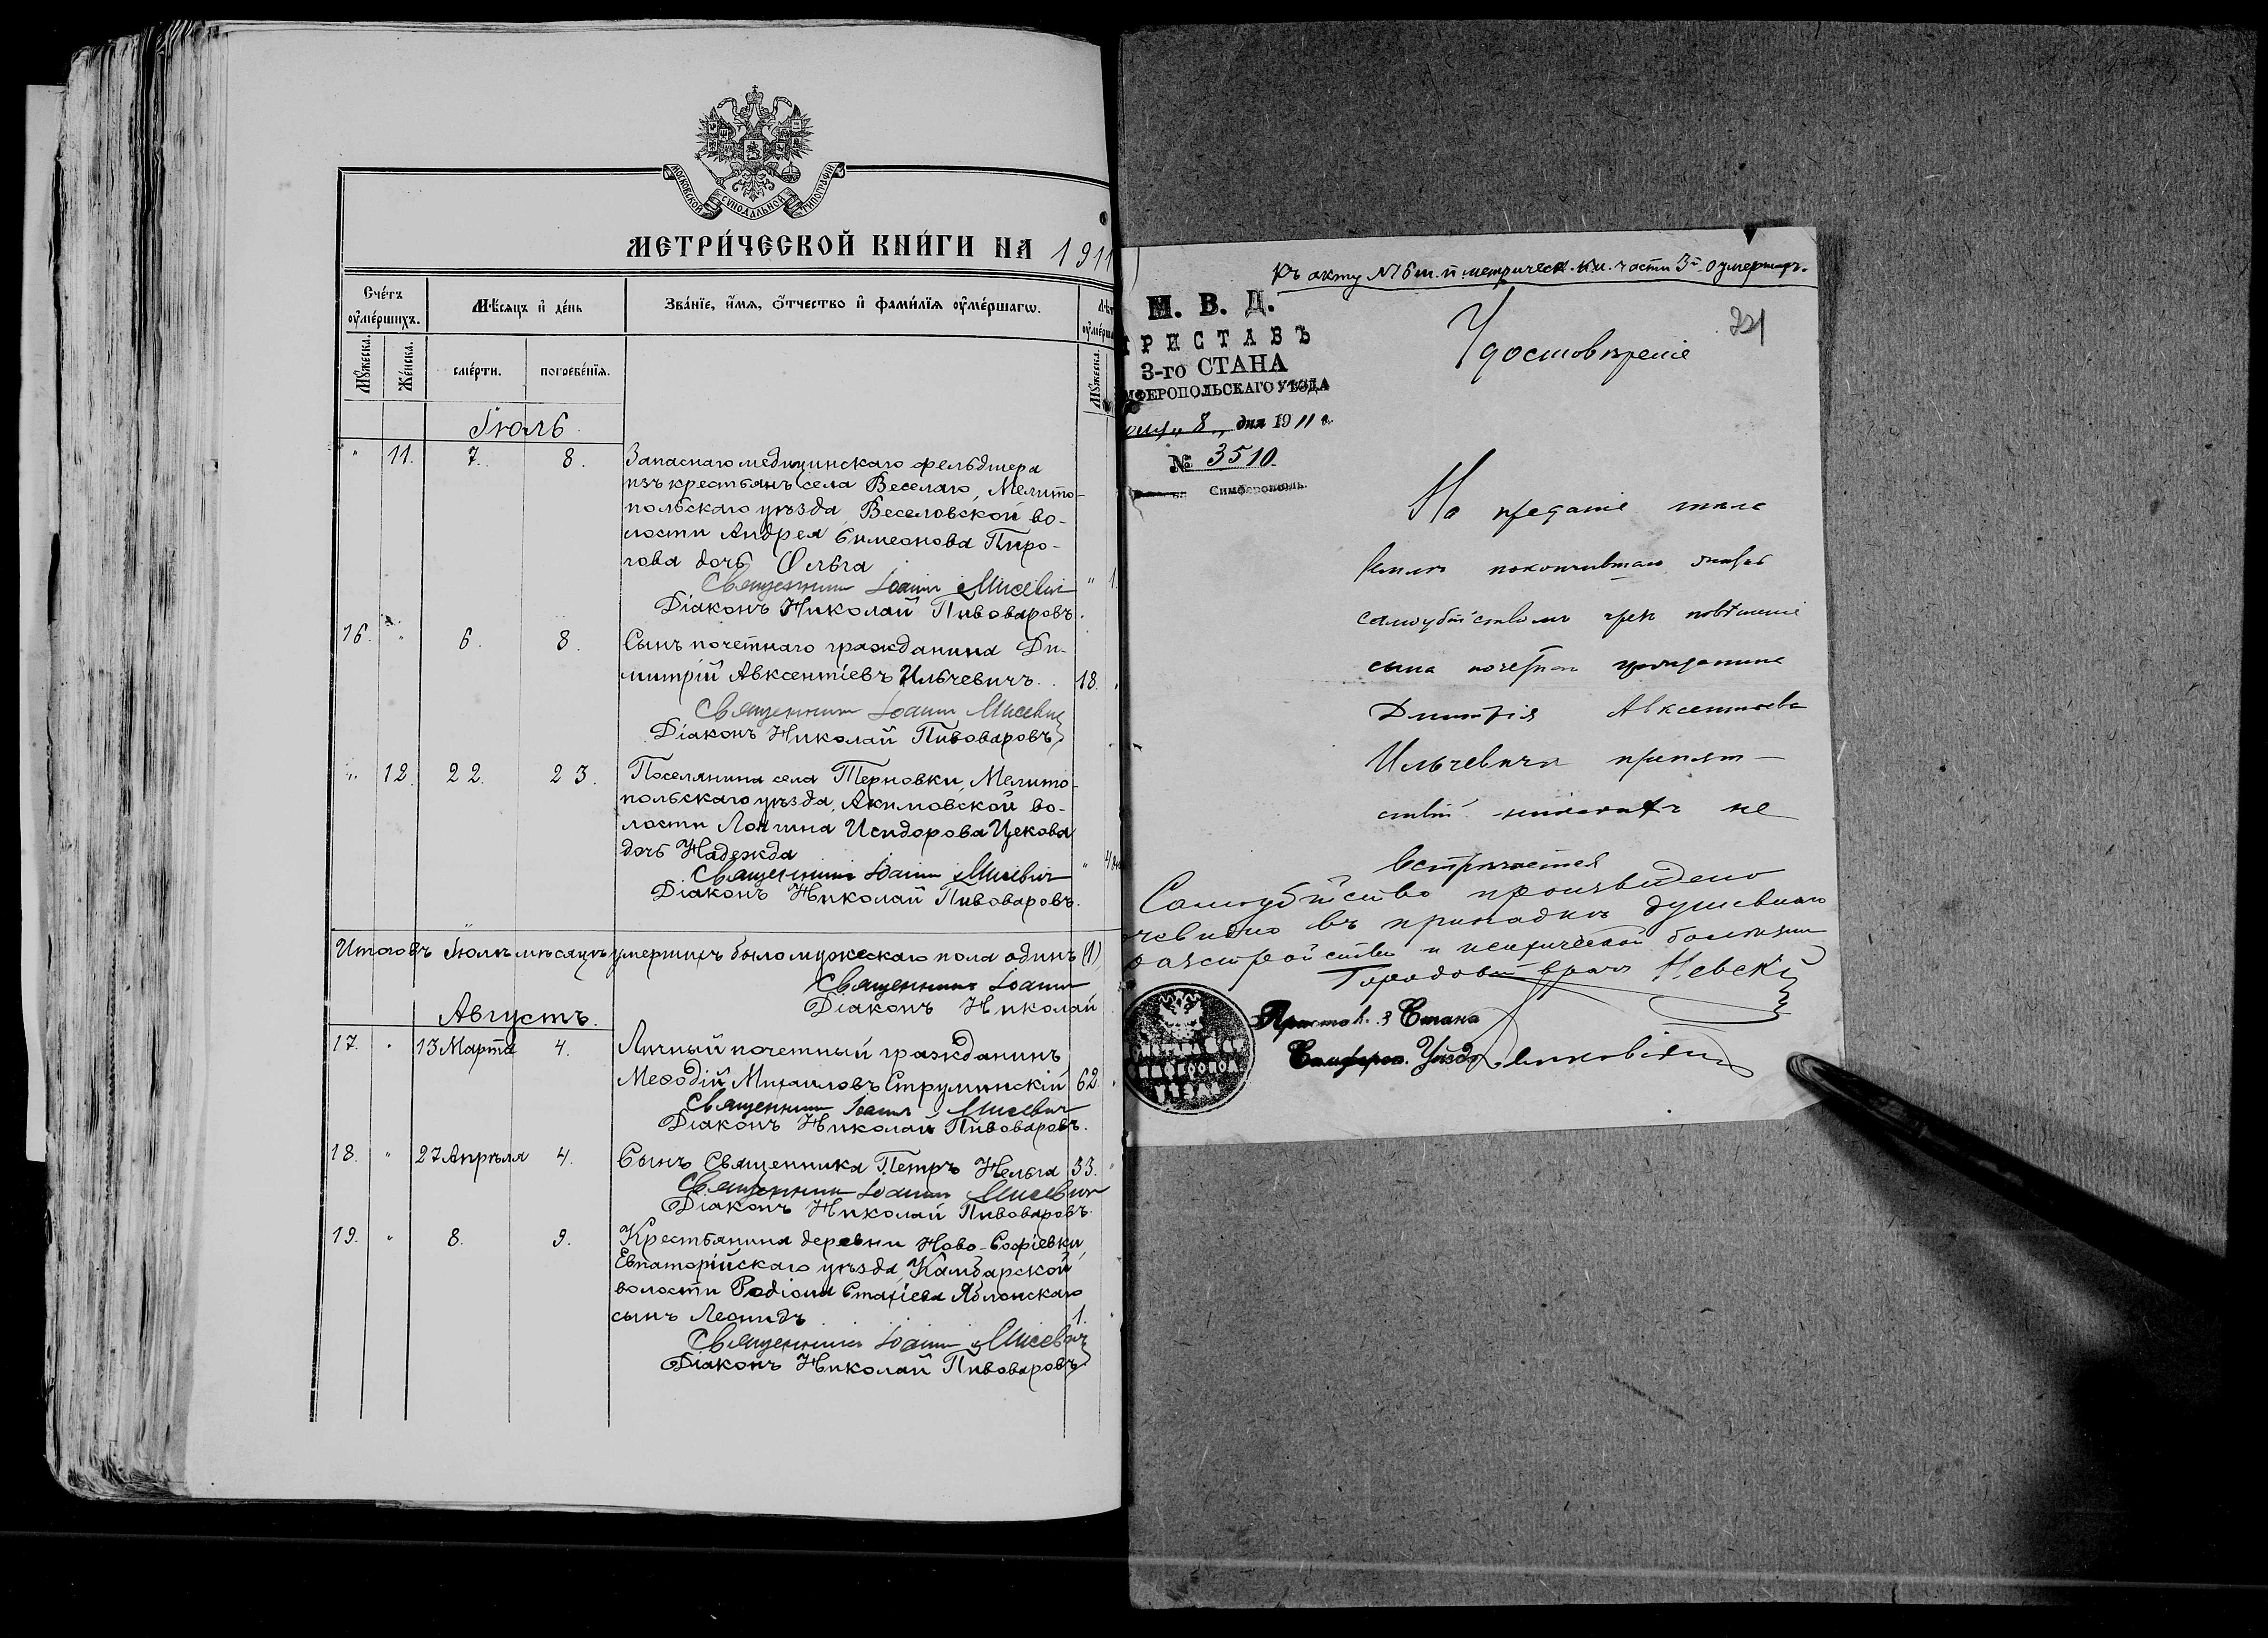 МОСКОВСКОЙ СѴНОДАЛЬНОЙ ТИПОГРАФІИ
МЕТРИ́ЧЕСКОЙ КНИ́ГИ НА 1911
Счётъ оу҆ме́ршихъ.
Мѣ́сяцъ и҆ де́нь
Зва́нїе, и҆́мя, ѻ҆́тчество и҆ фами́лїя оу҆ме́ршагѡ.
Мꙋ́жеска.
Же́нска.
сме́рти.
погребе́нїя.
Мꙋ́жеска.
Іюль
" 11. 7. 8. Запаснаго медицинскаго фельдшера
изъ крестьянъ села Веселаго, Мелито-
польскаго уѣзда, Веселовской во-
лости Андрея Симеонова Пиро-
гова дочь Ольга
Священникъ Іоаннъ Мисевичъ " 1.
Діаконъ Николай Пивоваровъ.
16. " 6. 8. Сынъ почетнаго гражданина Ди-
митрій Авксентіевъ Ильчевичъ. 18.
Священникъ Іоаннъ Мисевичъ
Діаконъ Николай Пивоваровъ
" 12. 22. 23. Поселянина села Терновки, Мелито-
польскаго уѣзда, Акимовской во-
лости Логина Исидорова Цекова
дочь Надежда
Священникъ Іоаннъ Мисевичъ
Діаконъ Николай Пивоваровъ.
Итого въ Іюлѣ мѣсяцѣ умершихъ было мужескаго пола одинъ (1),
Священникъ Іоаннъ
Діаконъ Николай
Августъ.
17. " 13 Марта 4. Личный почетный гражданинъ
Меѳодій Михаиловъ Струминскій 62
Священникъ Іоаннъ Мисевичъ
Діаконъ Николай Пивоваровъ.
18. " 27 Апрѣля 4. Сынъ Священника Петръ Нельга 33.
Священникъ Іоаннъ Мисевичъ
Діаконъ Николай Пивоваровъ.
19. " 8. 9. Крестьянина деревни Ново-Софіевки,
Евпаторійскаго уѣзда, Камбарской
волости Родіона Стахіева Яблонскаго
сынъ Леонидъ 1.
Священникъ Іоаннъ Мисевичъ
Діаконъ Николай Пивоваровъ
Къ акту №16 м. п. метрическ. кн. части 3й о умершихъ.
221
М. В. Д.
ПРИСТАВЪ
3-го СТАНА
СИМФЕРОПОЛЬСКАГО УѢЗДА
8 дня 1911 г.
№ 3510
Симферополь.
Удостовѣреніе
На преданіе тѣла
землѣ покончившаго жизнь
самоубійствомъ чрез повѣшеніе
сына почетнаго гражданина
Дмитрія Авксентьева
Ильчевича препят-
ствій никакихъ не
встрѣчается
Самоубійство произведено
очевидно въ припадкѣ душевнаго
разстройства и психической болѣзни
Городовой врачъ Невскій
Приставъ 3 Стана
Симфероп. Уѣзда